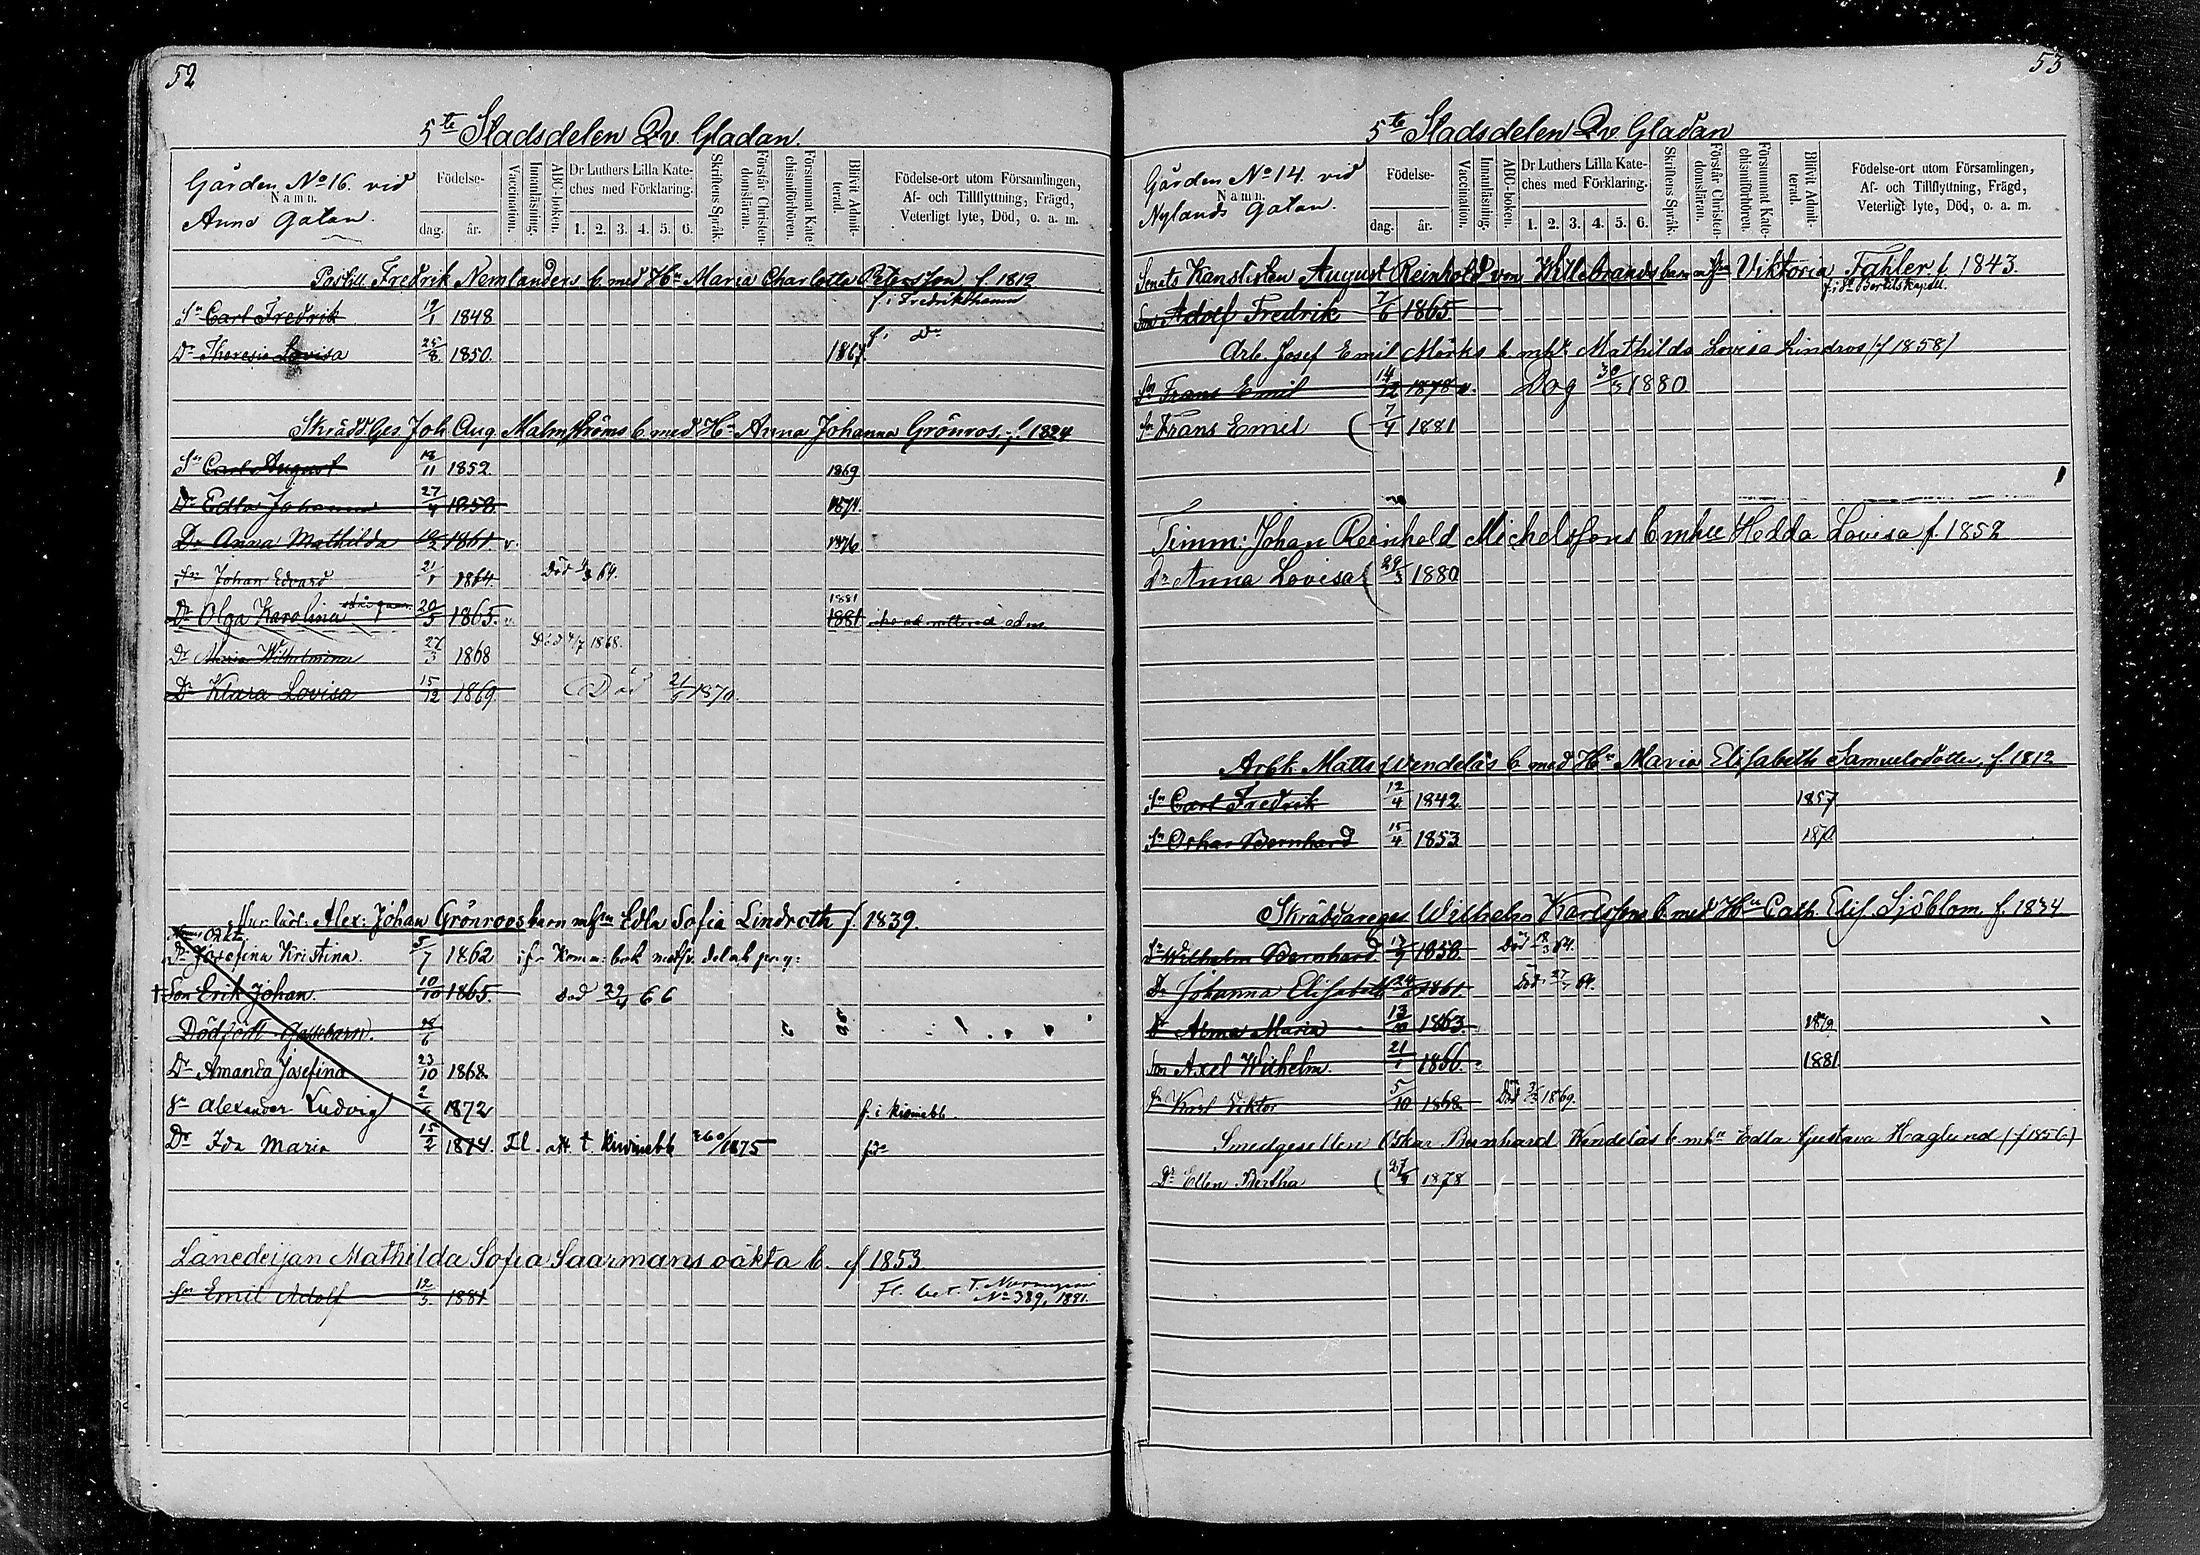 52
5te Stadsdelen Qv. Gladan.
Gården No 16. vid
Namn.
Anna Gatan.
Födelse-
dag.
år.
Vaccination.
Innanläsning.
ABC-boken.
Dr Luthers Lilla Kate-
ches med Förklaring.
1. 2. 3. 4. 5. 6.
Skriftens Språk.
Förstår Christen-
domsläran.
Försummat Kate-
chismiförhören.
Blivit Admit-
terad.
Födelse-ort utom Församlingen,
Af- och Tillflyttning, Frägd,
Veterligt lyte, Död, o. a. m.
Fredrik Nemlanders b. med Hu Maria Charlotta Petersson f. 1812
Sn Carl Fredrik 1848 f. i Fredrikshamn
Dr Theresia Lovisa 25/8 1850. 1867 f. i Do
Skrädd Ges Joh Aug Malmströms b med Hu Anna Johanna Grönros, f. 1824
Sn Carl August 18/11 1852 1869
Dr Edla Johanna 27/4 1858 1874
Dr Anna Mathilda 1861. v. 1876
Sn Johan Edvard 21/1 1864 Död 64.
1881
Dr Olga Karolina 20/5 1865. v 1881
Dr Maria Wilhelmina 27/3 1868 Död /7 1868.
Dr Klara Lovisa 15/12 1869 Död 21/ 1870.
Alex: Johan Grönroos barn m hu Edla Sofia Lindroth f. 1839.
Dr Josefina Kristina. 5/7 1862
† Son Erik Johan. 10/10 1865. död 29/4 66
Dödfödt Gossebarn.
Dr Amanda Josefina 23/10 1868
Sn Alexander Ludvig 1872 f. i
Dr Ida Maria 15/2 1874. Fl. att. t. 1875
Mathilda Sofia Saarmans oäkta b. f 1853
Sn Emil Adolf 12/5. 1881 Fl. bet. T.
No 389, 1881.
53
5te Stadsdelen Qv. Gladan
Gården No 14. vid
Namn.
Nylands Gatan.
Födelse-
dag.
år.
Vaccination.
Innanläsning.
ABC-boken.
Dr Luthers Lilla Kate-
ches med Förklaring.
1. 2. 3. 4. 5. 6.
Skriftens Språk.
Förstår Christen-
domsläran.
Försummat Kate-
chismiförhören.
Blivit Admit-
terad.
Födelse-ort utom Församlingen,
Af- och Tillflyttning, Frägd,
Veterligt lyte, Död, o. a. m.
Senats Kanslisten August Reinhold von Willebrands barn m hu Viktoria Fahler f. 1843.
Son Adolf Fredrik 7/6 1865
Arb. Josef Emil Mörks b. m hu Mathilda Lovisa Lindros (f 1858)
Sn Frans Emil 14/12 1878 v. Dog 30/3 1880
Sn Frans Emil 7/4 1881
Timm: Johan Reinhold Michelssons b mhu Hedda Lovisa f. 1852
Dr Anna Lovisa 29/3 1880
Arbk. Matts Wendelas b med Hu Maria Elisabeth Samuelsdotter f. 1812
Sn Carl Fredrik 12/4 1842 1857
Sn Oskar Bernhard 15/4 1853 1870
Skräddareges Wilhelm Karlssons b. med Hu Cath. Elis. Sjöblom f. 1834
Sn Wilhelm Bernhard 1858. Död 18/3 64.
Dr Johanna Elisabeth 1861. Död 27/ 64.
Dr Alma Maria 13/10 1863. 1879
Son Axel Wilhelm. 21/1 1866. 1881
Sn Karl Viktor 5/10 1868 Död 1869.
Smedgesellen Oskar Bernhard Wendelas b. mhu Edla Gustava Haglund (f 1856)
Dr Ellen Bertha 27/9 1878